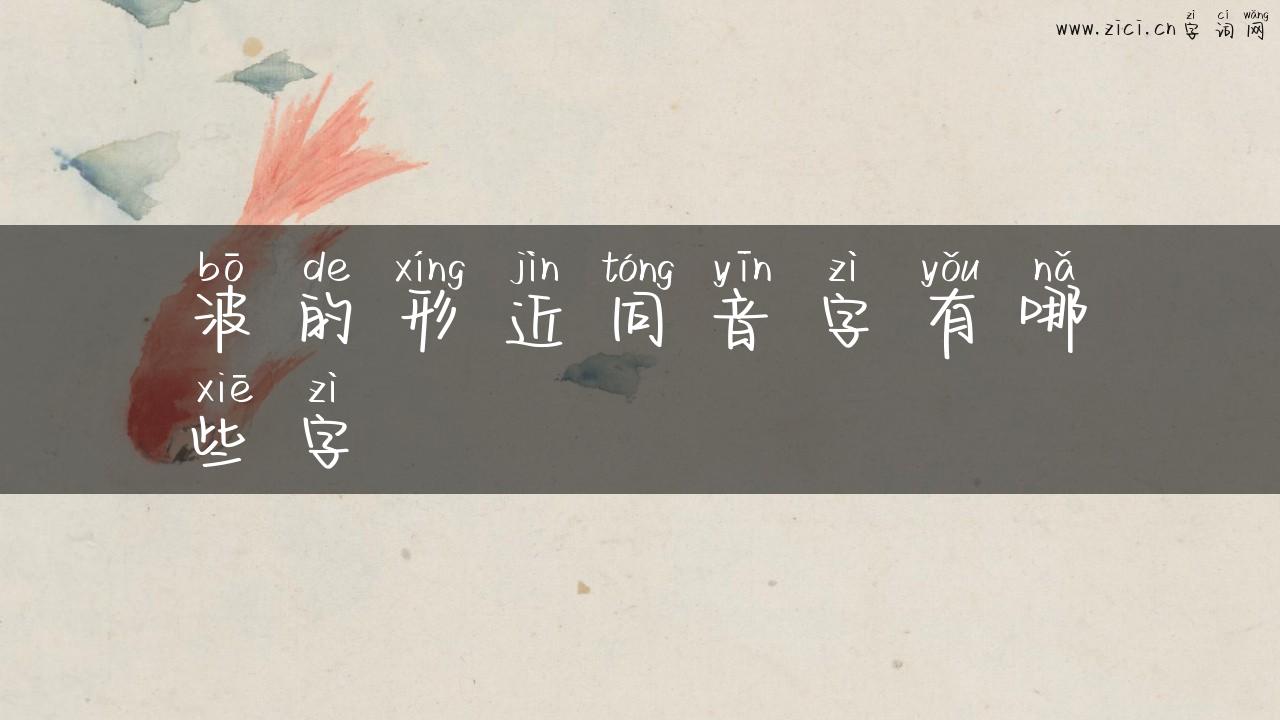 zì cí wǎng
www.zici.cn 字词网
bō de xíng jìn tóng yīn zì yǒu nǎ
波的形近同音字有哪
xiē zì
些字